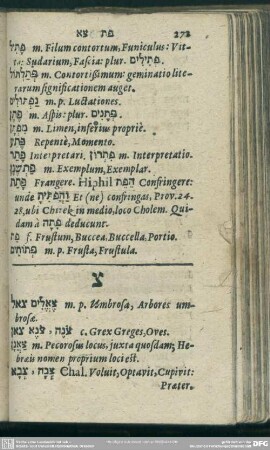 פת צא 272
פתל m. Filum contortum, Funiculus: Vit-
ta: Sudarium, Fascia: plur. פתילים
פתלתול m. Contortissimum: geminatio lite-
rarum significationem auget.
נפתולים m. p. Luctationes.
פתן m. Aspis: plur. פתנים
מפתן m. Limen, inferius propriè.
פתע Repentè, Momento.
פתר Interpretari. פתרון m. Interpretatio.
פתשגן m. Exemplum, Exemplar.
פתת Frangere. Hiphil הפת Confringere:
unde Et (ne) confringas, Prov. 24.
28, ubi Chirek in medio, loco Cholem. Qui-
dam à פתה deducunt.
פת f. Frustum, Buccea, Buccella, Portio.
פתותים m. p. Frusta, Frustula.
צ
צאל צאלים m. p. Umbrosæ, Arbores um-
brosæ.
צאן c. Grex Greges, Oves.
צאנן m. Pecorosus locus, juxta quosdam; He-
bræis nomen proprium loci est.
צבא Chal. Voluit, Optavit, Cupirit:
Præter.